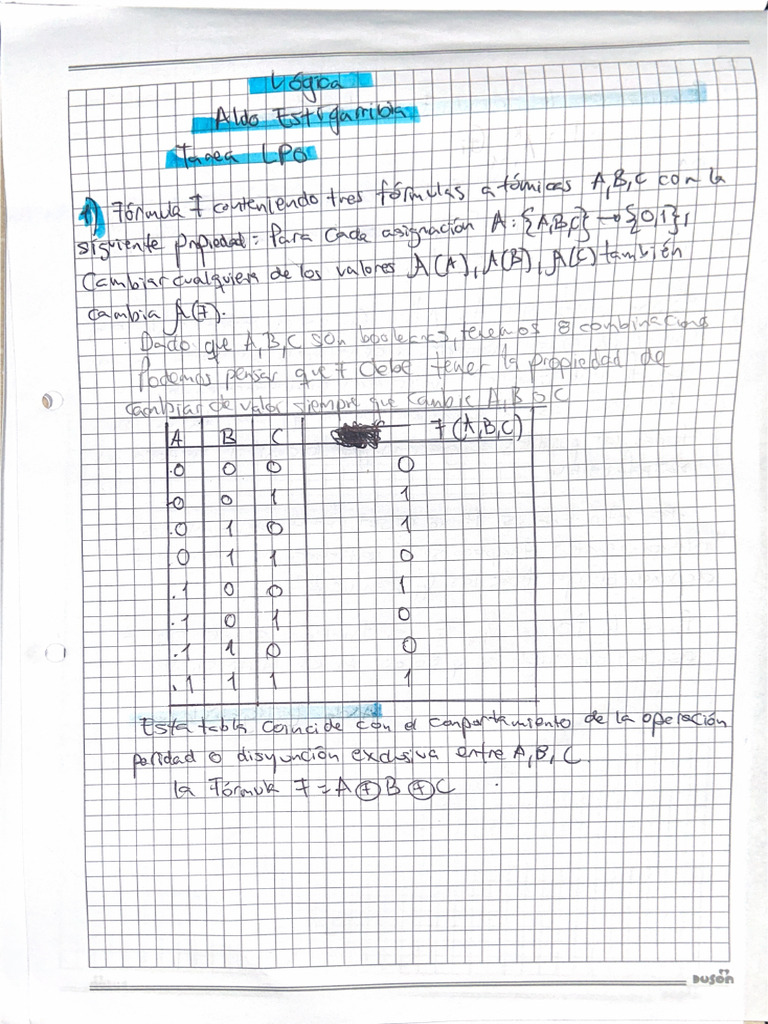 Lógica
Aldo Estigarribia
Tarea LPO
1) Fórmula F conteniendo tres fórmulas atómicas A,B,C con la
siguiente propiedad: Para cada asignación A: {A,B,C} → {0,1},
cambiar cualquiera de los valores A(A), A(B), A(C) también
cambia A(F).
Dado que A,B,C son booleanas, tenemos 8 combinaciones
Podemos pensar que F debe tener la propiedad de
cambiar de valor siempre que cambie A,B o C
A B C F(A,B,C)
0 0 0 0
0 0 1 1
0 1 0 1
0 1 1 0
1 0 0 1
1 0 1 0
1 1 0 0
1 1 1 1
Esta tabla coincide con el comportamiento de la operación
paridad o disyunción exclusiva entre A,B,C.
la Fórmula F = A ⊕ B ⊕ C
Dusón